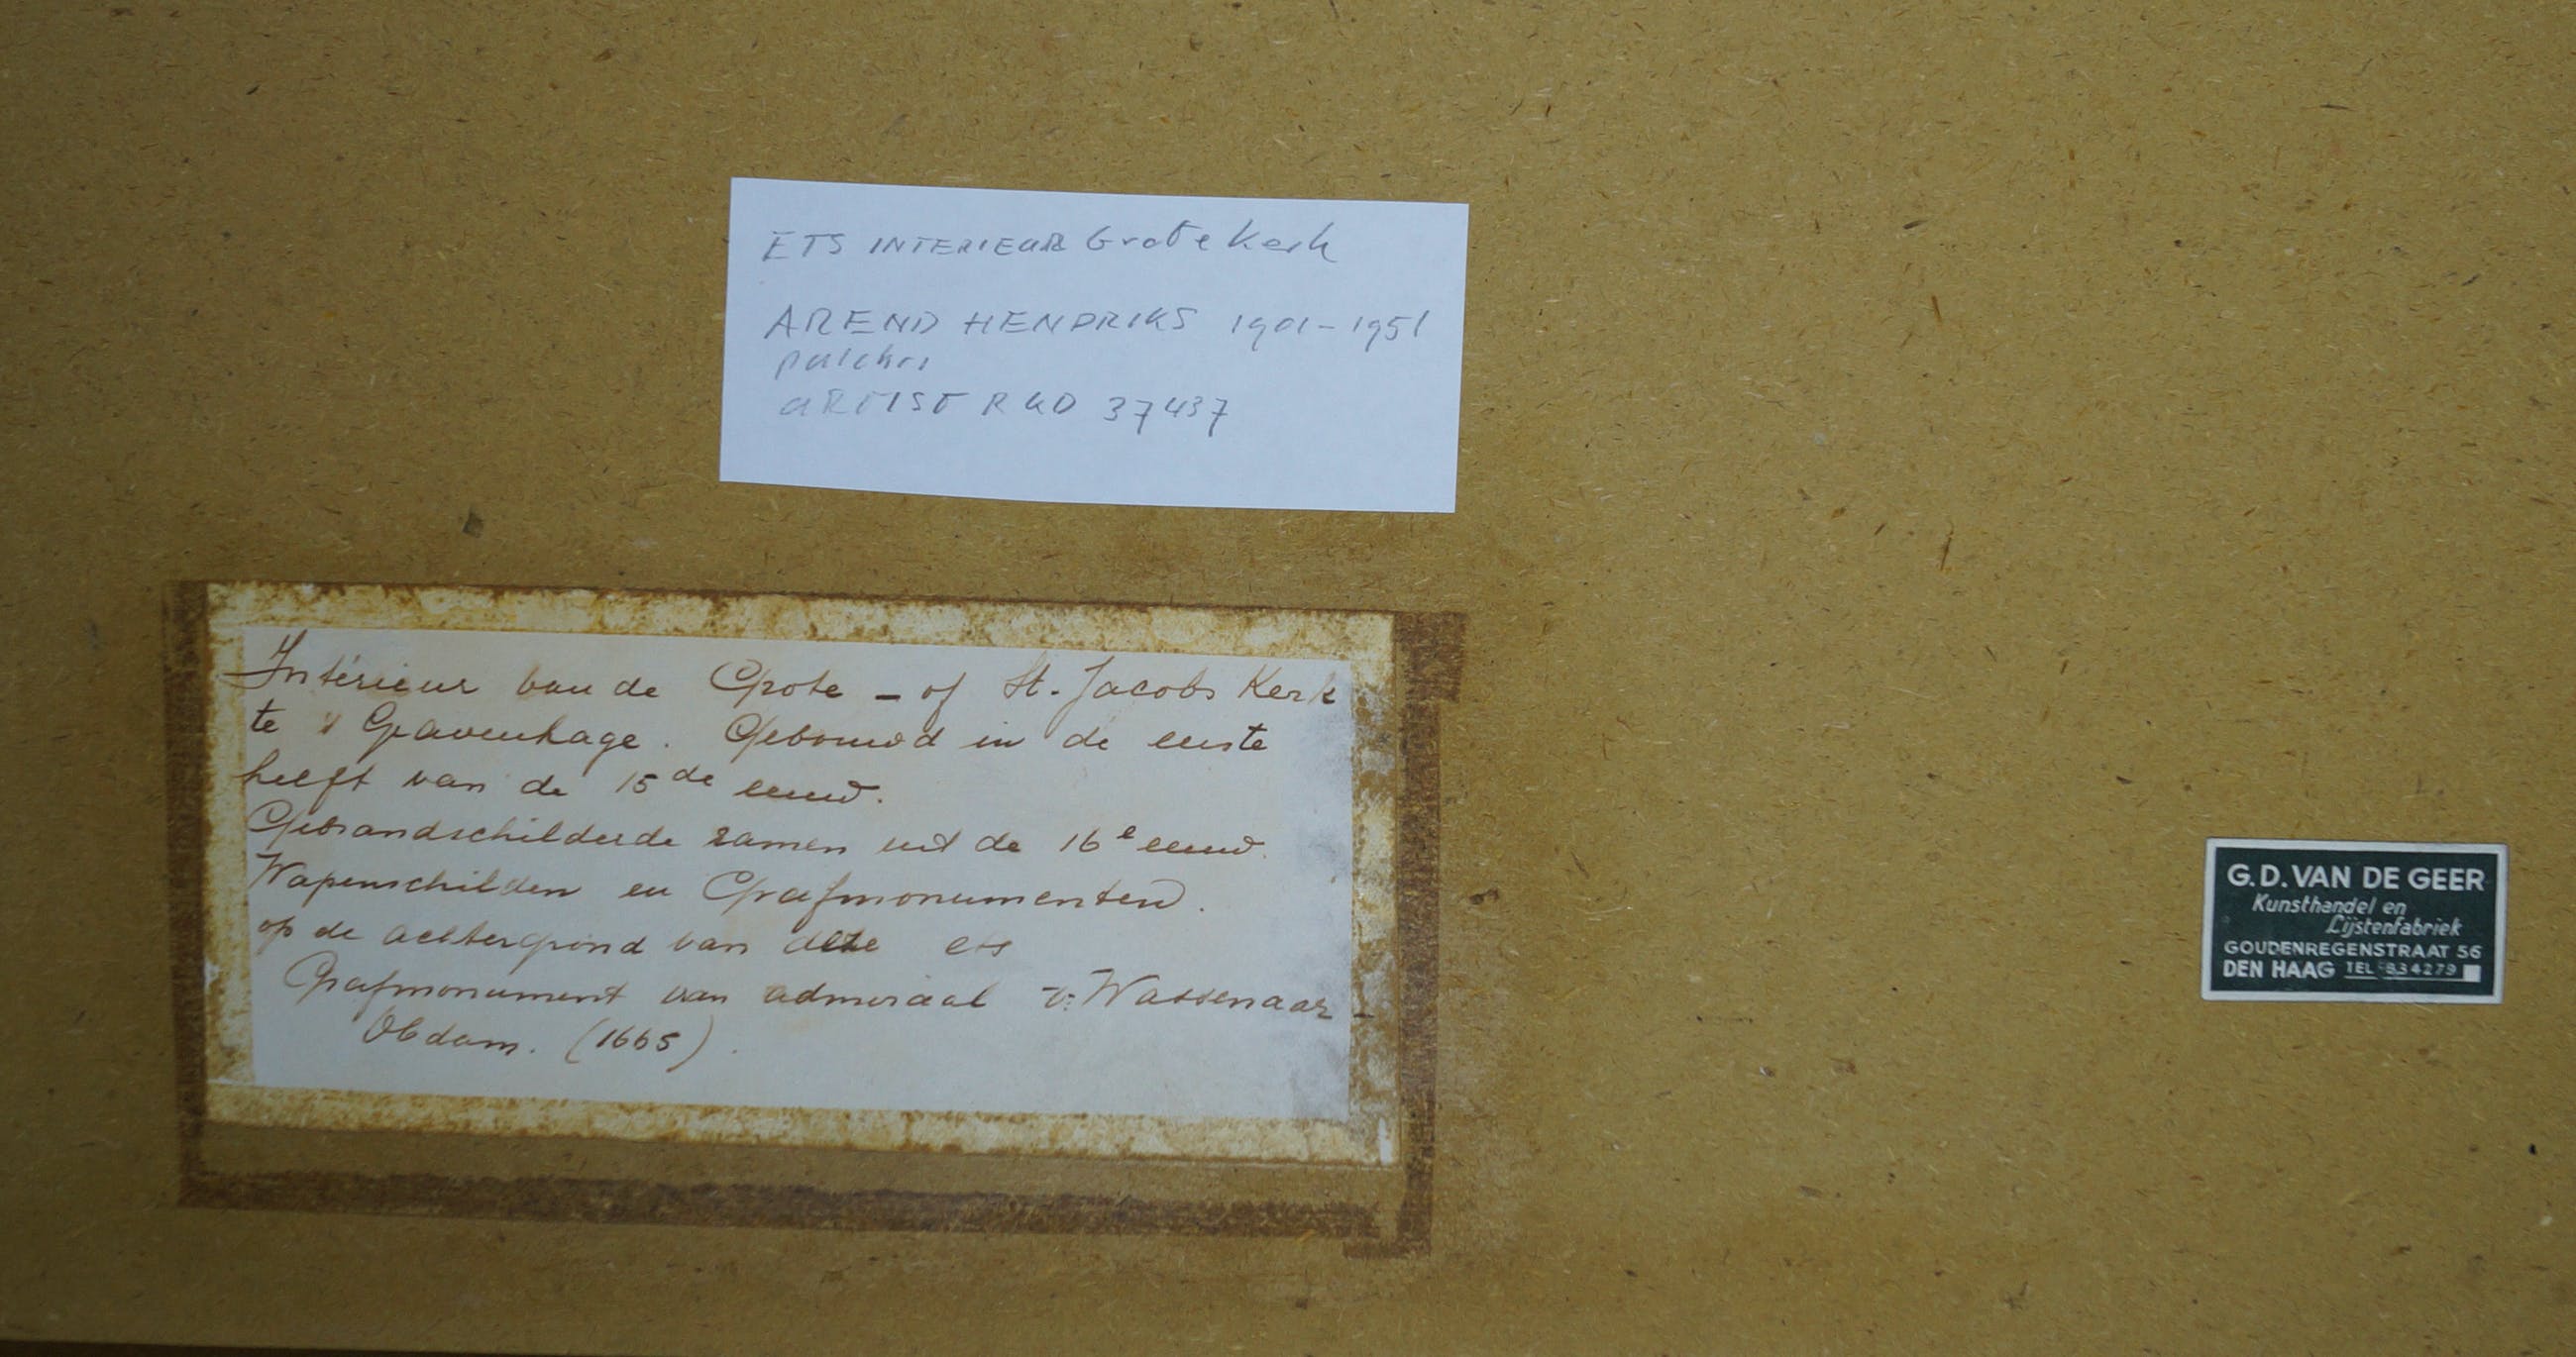 ETS INTERIEUR Grote Kerk
AREND HENDRIKS 1901-1951
pulchri
ARTIST RKD 37437
Intérieur van de Grote - of St. Jacobs Kerk
te 's Gravenhage. Gebouwd in de eerste
helft van de 15de eeuw.
Gebrandschilderde ramen uit de 16e eeuw.
Wapenschilden en Grafmonumenten.
op de achtergrond van deze ets
Grafmonument van admiraal v. Wassenaar -
Obdam. (1665).
G.D. VAN DE GEER
Kunsthandel en
Lijstenfabriek
GOUDENREGENSTRAAT 56
DEN HAAG TEL 634279